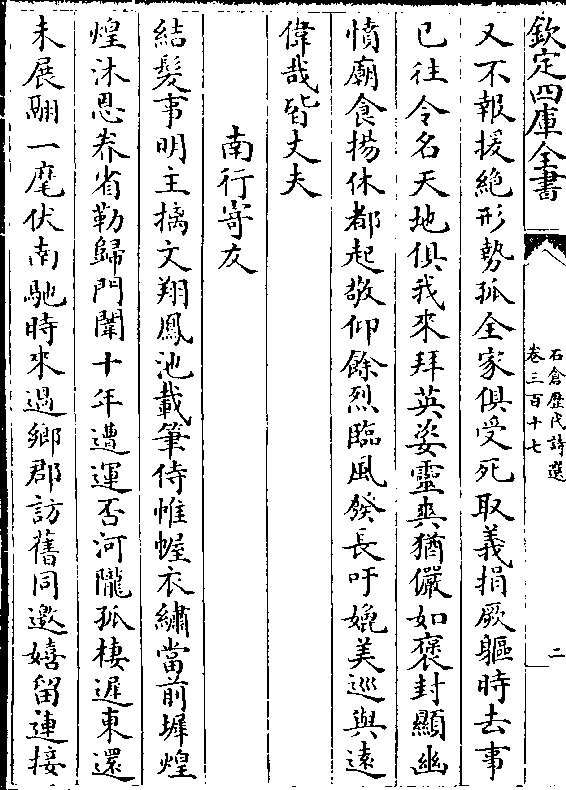 欽定四庫全書
石倉歷代詩選
卷三百十七
二
又不報援絶形勢孤全家俱受死取義捐厥軀時去事
已往令名天地俱我來拜英姿靈爽猶儼如褒封顯幽
憤廟食揚休都起敬仰餘烈臨風發長吁媲美巡與遠
偉哉皆丈夫
南行寄友
結髮事明主摛文翔鳳池載筆侍帷幄衣繡當前墀煌
煌沐恩眷省勒歸門闈十年遭運否河隴孤棲遲東還
未展翮一麾伏南馳時來過鄉郡訪舊同邀嬉留連接